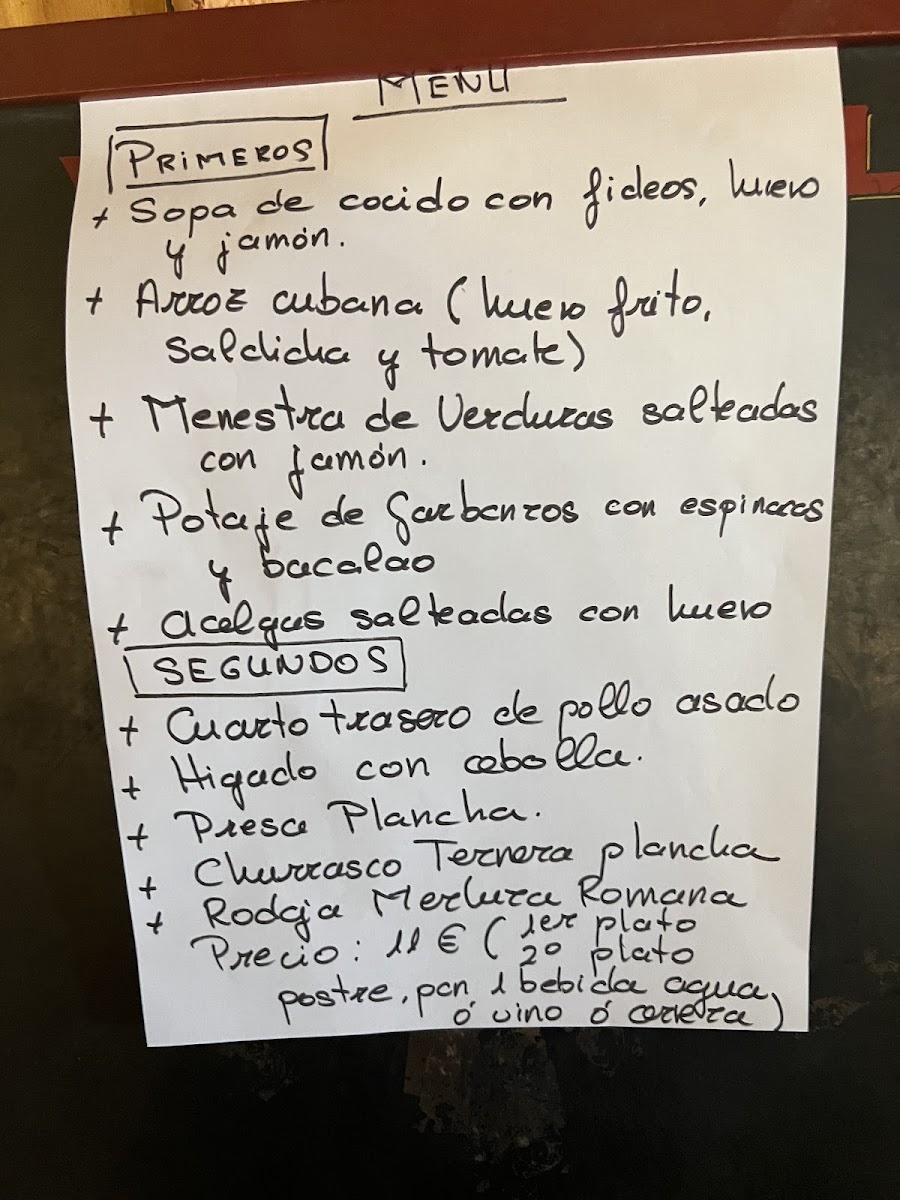 MENU
PRIMEROS
+ Sopa de cocido con fideos, huevo
y jamón.
+ Arroz cubana (huevo frito,
salchicha y tomate)
+ Menestra de Verduras salteadas
con jamón.
+ Potaje de Garbanzos con espinacas
y bacalao
+ acelgas salteadas con huevo
SEGUNDOS
+ Cuarto trasero de pollo asado
+ Higado con cebolla.
+ Presa Plancha.
+ Churrasco Ternera plancha
+ Rodaja Merluza Romana
Precio: 11 € ( 1er plato
2º plato
postre, pan 1 bebida agua,
ó vino ó cerveza)